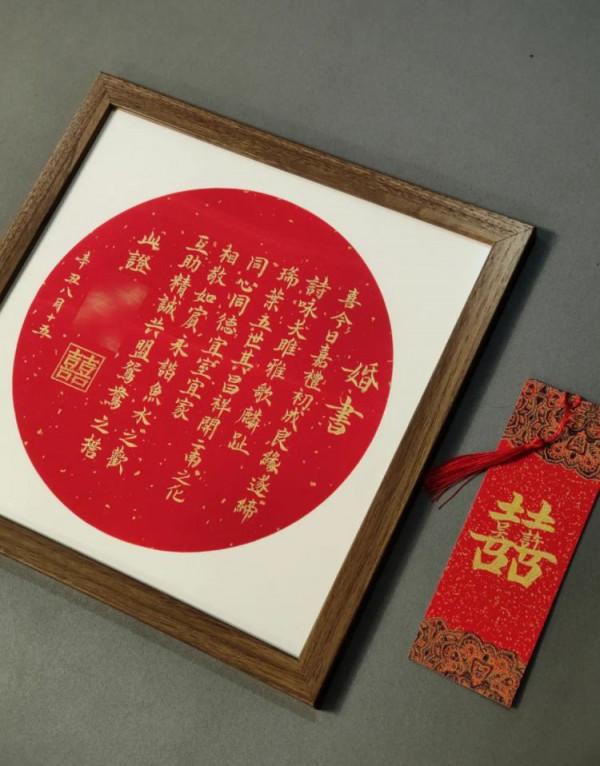 婚書
喜今日嘉禮初成良緣遂締
詩咏关雎雅歌麟趾
瑞葉五世其昌祥開二南之化
同心同德宜室宜家
相敬如賓永諧魚水之歡
互助精誠共盟鴛鴦之誓
此證
辛丑八月十五
囍
囍